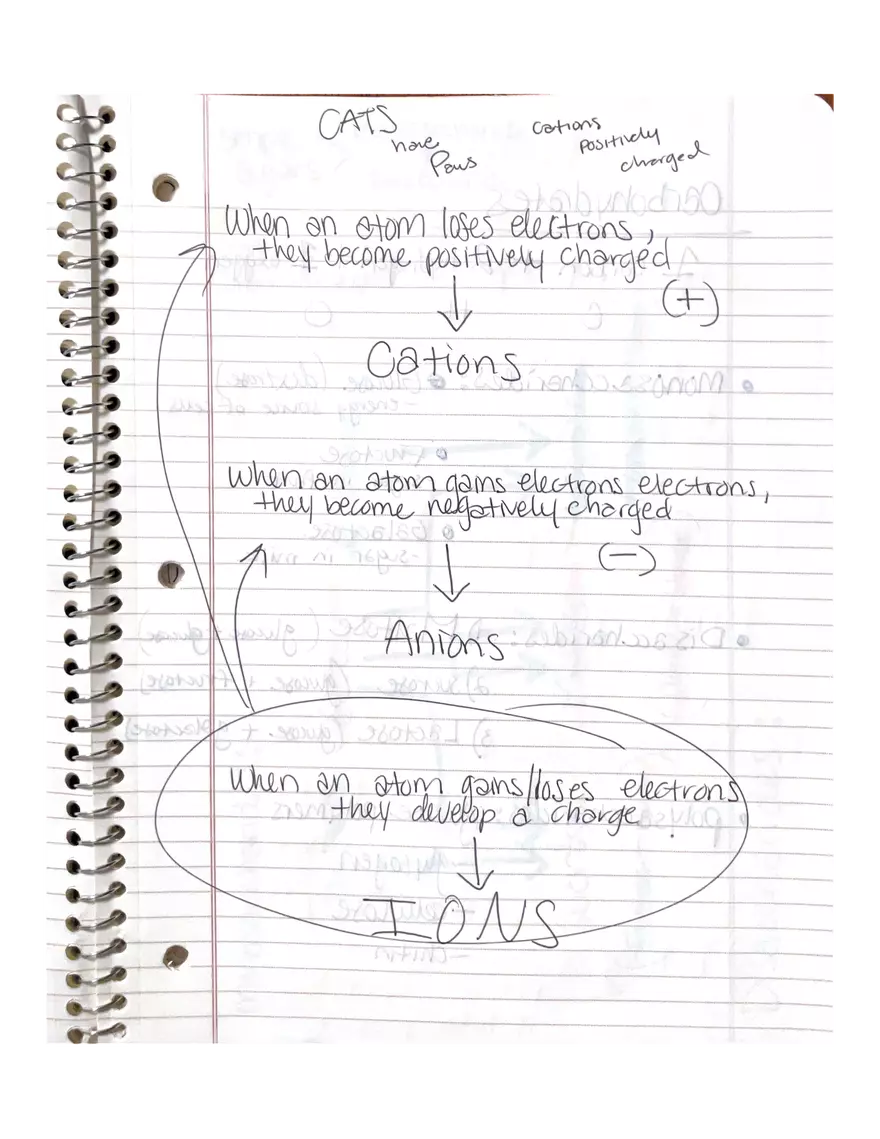 CATS
have
Paws
cations
positively
charged
When an atom loses electrons,
they become positively charged
(+)
Cations
When an atom gains electrons electrons,
they become negatively charged
(-)
Anions
When an atom gains/loses electrons
they develop a charge
IONS